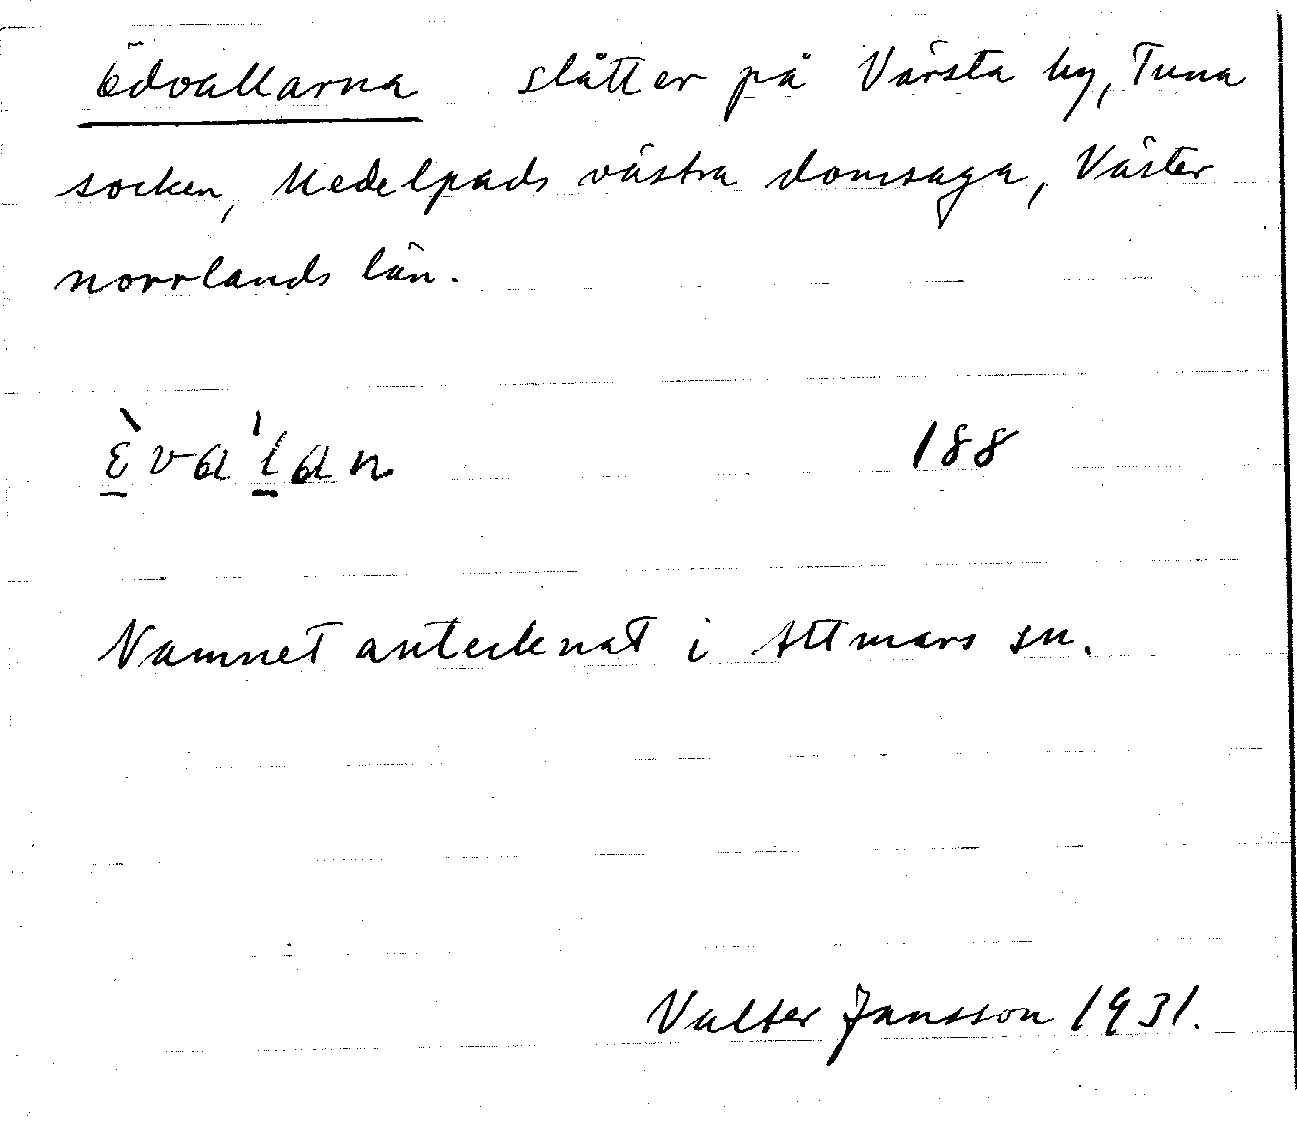 Ödvallarna slåtter på Värsta by, Tuna
socken, Medelpads västra domsaga, Väster
norrlands län.
188
Namnet antecknat i Attmars sn.
Valter Jansson 1931.